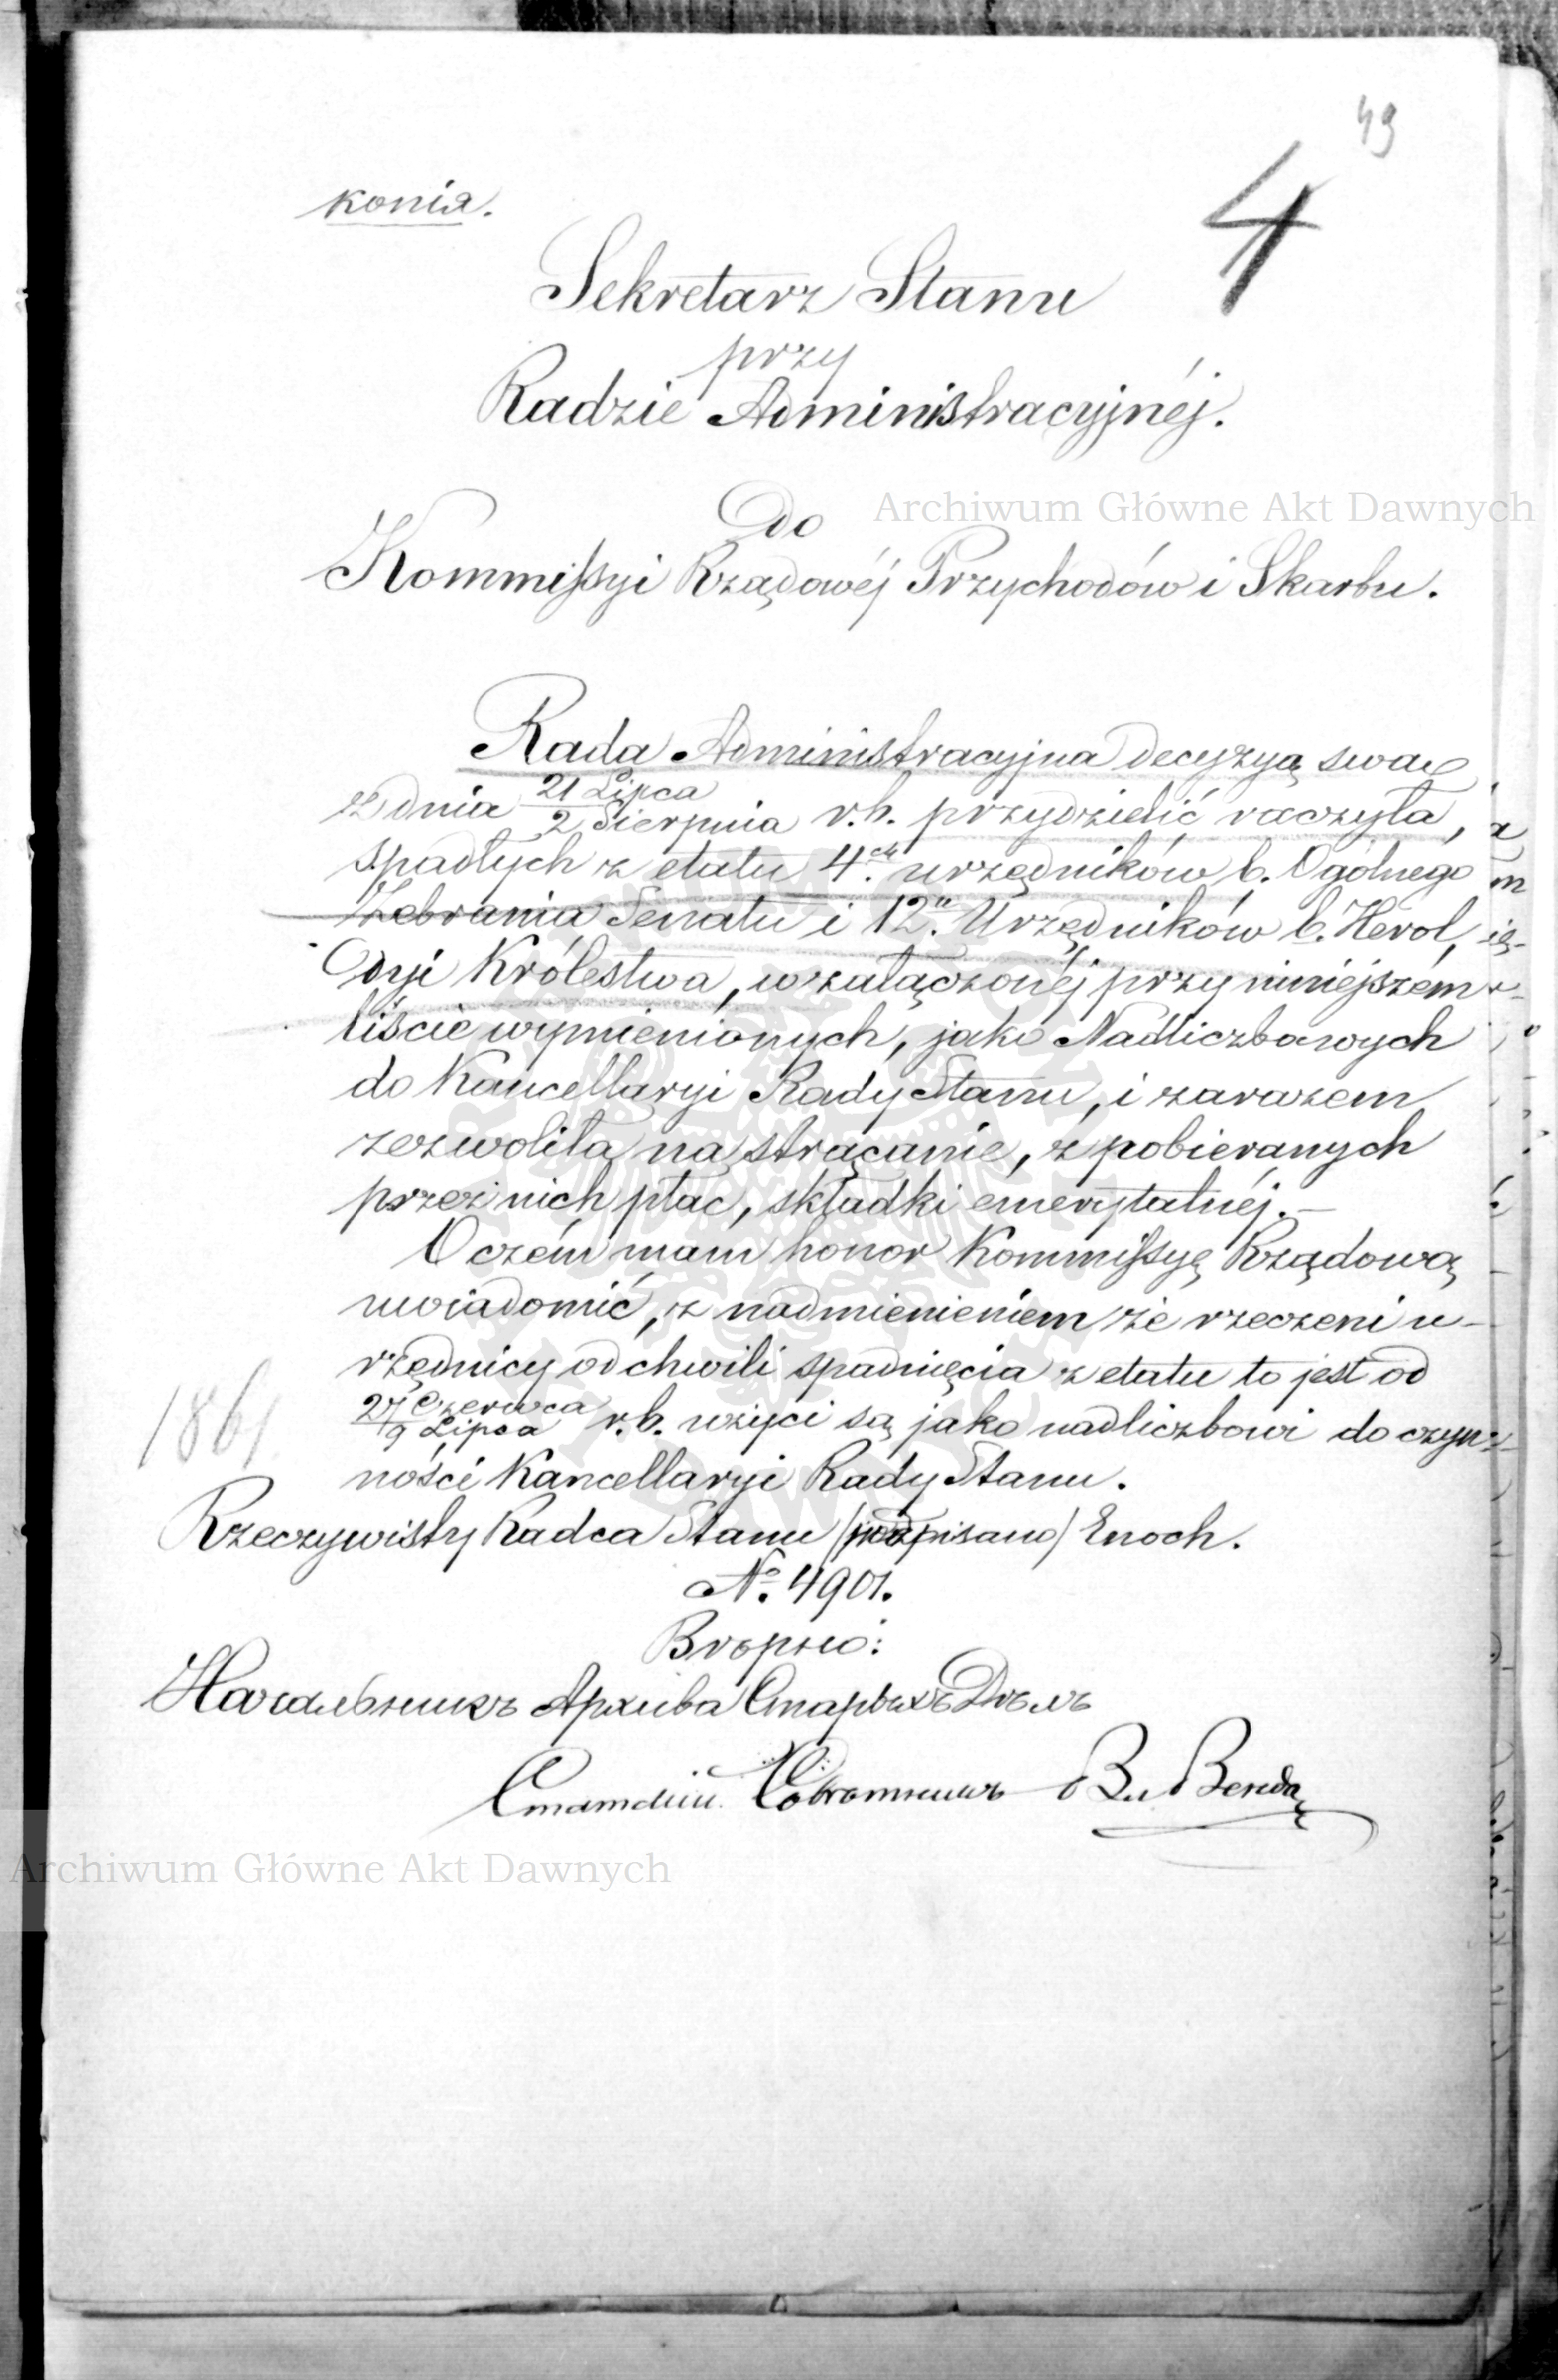 49
4
копія.
Sekretarz Stanu
przy
Radzie Administracyjnéj.
Do
Archiwum Główne Akt Dawnych
Kommissyi Rządowéj Przychodów i Skarbu.
Rada Administracyjna decyzyą swą
z dnia 21 Lipca / 2 Sierpnia r.b. przydzielić raczyła,
spadłych z etatu 4ch urzędników b. Ogólnego
Zebrania Senatu i 12u Urzędników b. Herol,
dyi Królestwa, w załączonéj przy niniejszém
liście wymienionych, jako Nadliczbowych
do Kancellaryi Rady Stanu, i zarazem
zezwoliła na strącanie, z pobieranych
przez nich płac, składki emerytalnéj.—
O czém mam honor Kommissyę Rządową
uwiadomić, z nadmienieniem że rzeczeni u-
rzędnicy od chwili spadnięcia z etatu to jest od
27 Czerwca / 9 Lipca r.b. użyci są jako nadliczbowi do czyn-
1861
ności Kancellaryi Rady Stanu.
Rzeczywisty Radca Stanu (podpisano) Enoch.
No. 4901.
Вѣрно:
Начальникъ Архива Старыхъ Дѣлъ
Статскій Совѣтникъ
Archiwum Główne Akt Dawnych